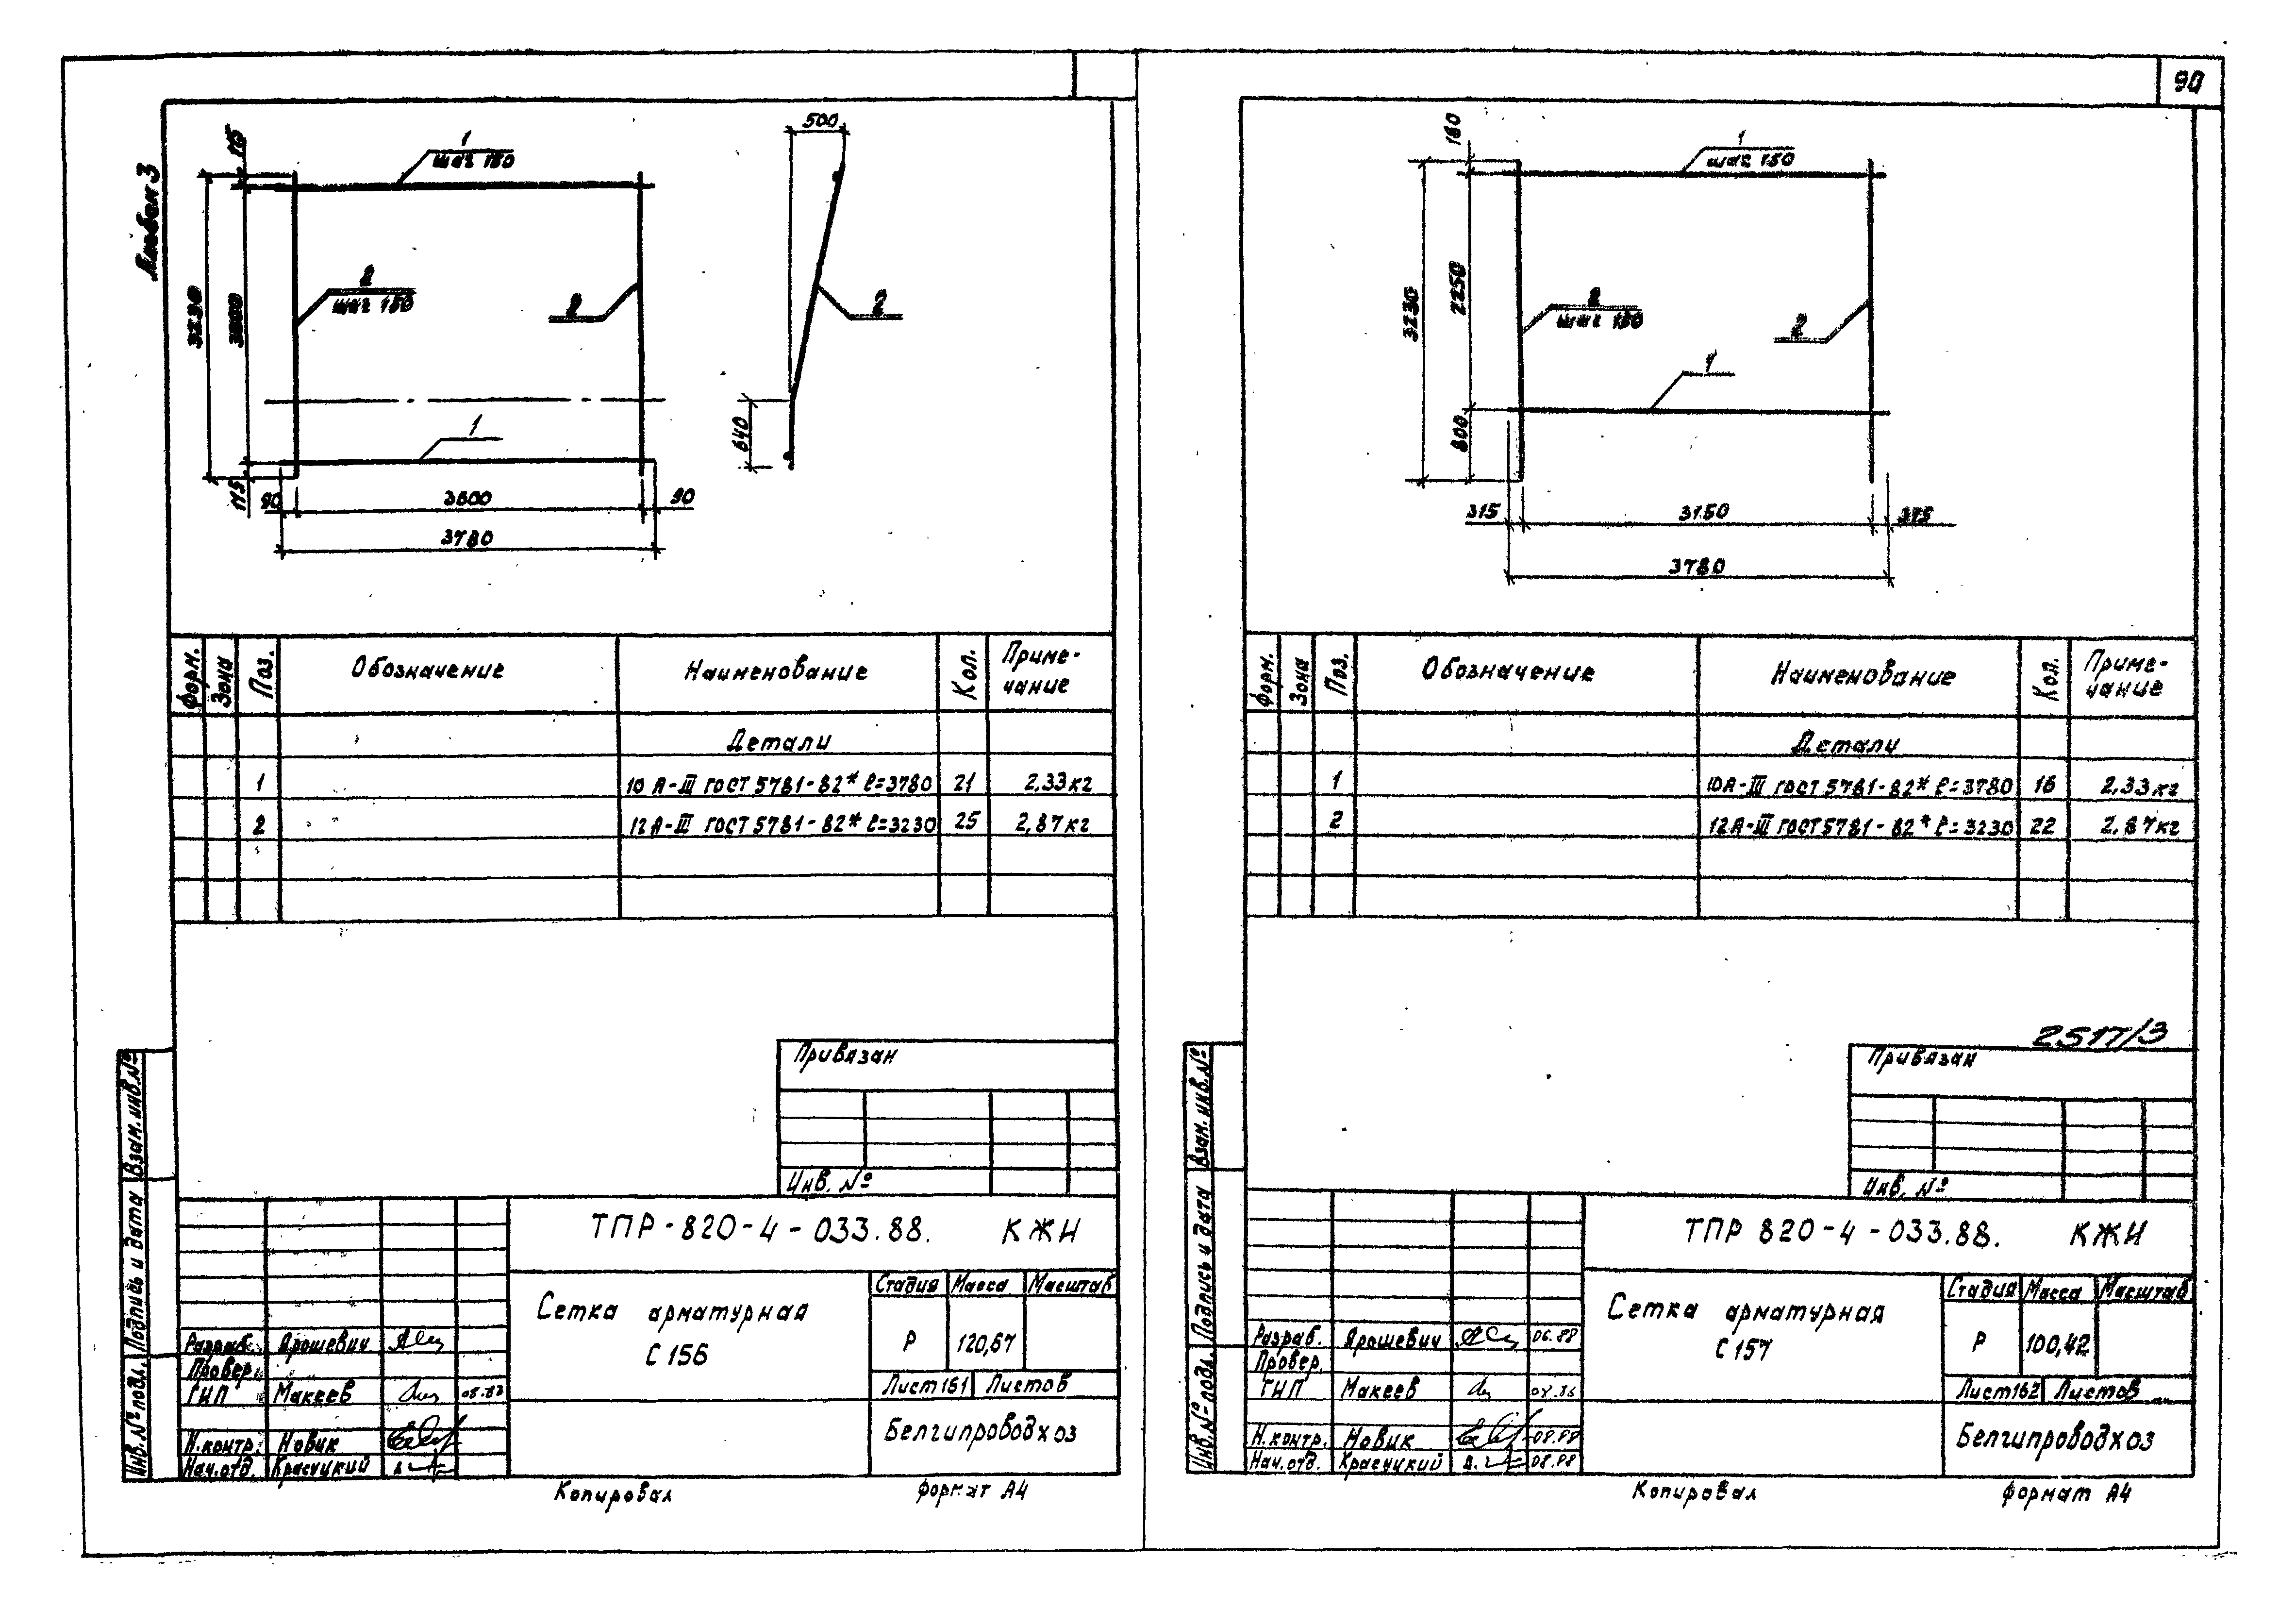 90
Альбом 3
115
1
шаг 150
3230
3000
2
шаг 150
2
1
115
90
3600
90
3780
500
2
640
Форм.
Зона
Поз.
Обозначение
Наименование
Кол.
Приме-
чание
Детали
1 10 А-III ГОСТ 5781-82* ℓ=3780 21 2,33кг
2 12 А-III ГОСТ 5781-82* ℓ=3230 25 2,87кг
Привязан
Инв. №
ТПР-820-4-033.88. КЖИ
Сетка арматурная
С 156
Стадия Масса Масштаб
Р 120,67
Лист 161 Листов
Белгипроводхоз
Разраб. Ярошевич
Провер.
ГИП Макеев
Н.контр. Новик
Нач.отд. Красуцкий
Инв. № подл. Подпись и дата Взам. инв. №
Копировал Формат А4
160
1
шаг 150
3230
2250
2
шаг 150
2
1
800
315
3150
315
3780
Форм.
Зона
Поз.
Обозначение
Наименование
Кол.
Приме-
чание
Детали
1 10А-III ГОСТ 5781-82* ℓ=3780 16 2,33кг
2 12А-III ГОСТ 5781-82* ℓ=3230 22 2,87кг
2517/3
Привязан
Инв. №
ТПР 820-4-033.88. КЖИ
Сетка арматурная
С 157
Стадия Масса Масштаб
Р 100,42
Лист 162 Листов
Белгипроводхоз
Разраб. Ярошевич 06.88
Провер.
ГИП Макеев
Н.контр. Новик 08.88
Нач.отд. Красуцкий 08.88
Инв. № подл. Подпись и дата Взам. инв. №
Копировал Формат А4